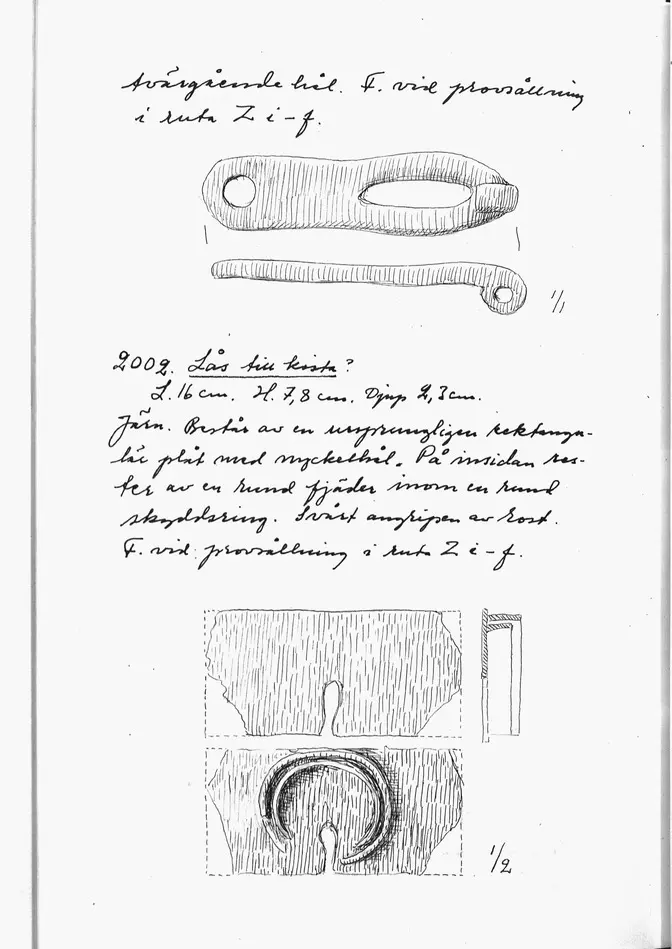 tvärgående hål. F. vid provsållning
i ruta Z i-f.
1/1
2002. Lås till kista?
L. 16 cm. H. 7,8 cm. Djup 2,3 cm.
Järn. Består av en ursprungligen rektangu-
lär plåt med nyckelhål. På insidan res-
ter av en rund fjäder inom en rund
skyddsring. Svårt angripen av rost.
F. vid provsållning i ruta Z i-f.
1/2